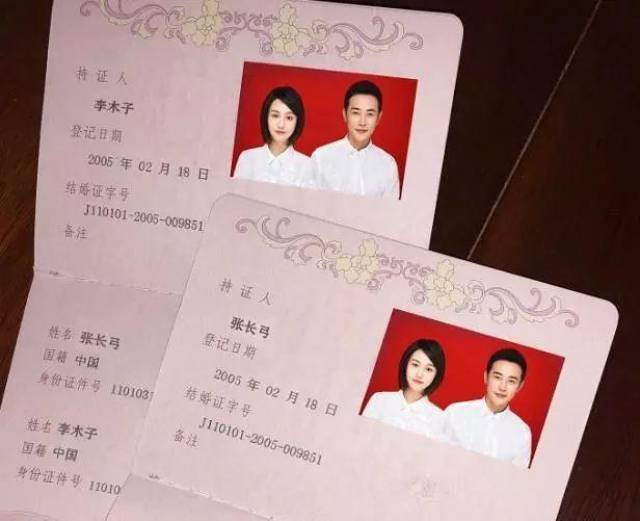 持证人
李木子
登记日期
2005 年 02 月 18 日
结婚证字号
J110101-2005-009851
备注
姓名 张长弓
国籍 中国
身份证件号 1101037
姓名 李木子
国籍 中国
身份证件号 11010
持证人
张长弓
登记日期
2005 年 02 月 18 日
结婚证字号
J110101-2005-009851
备注